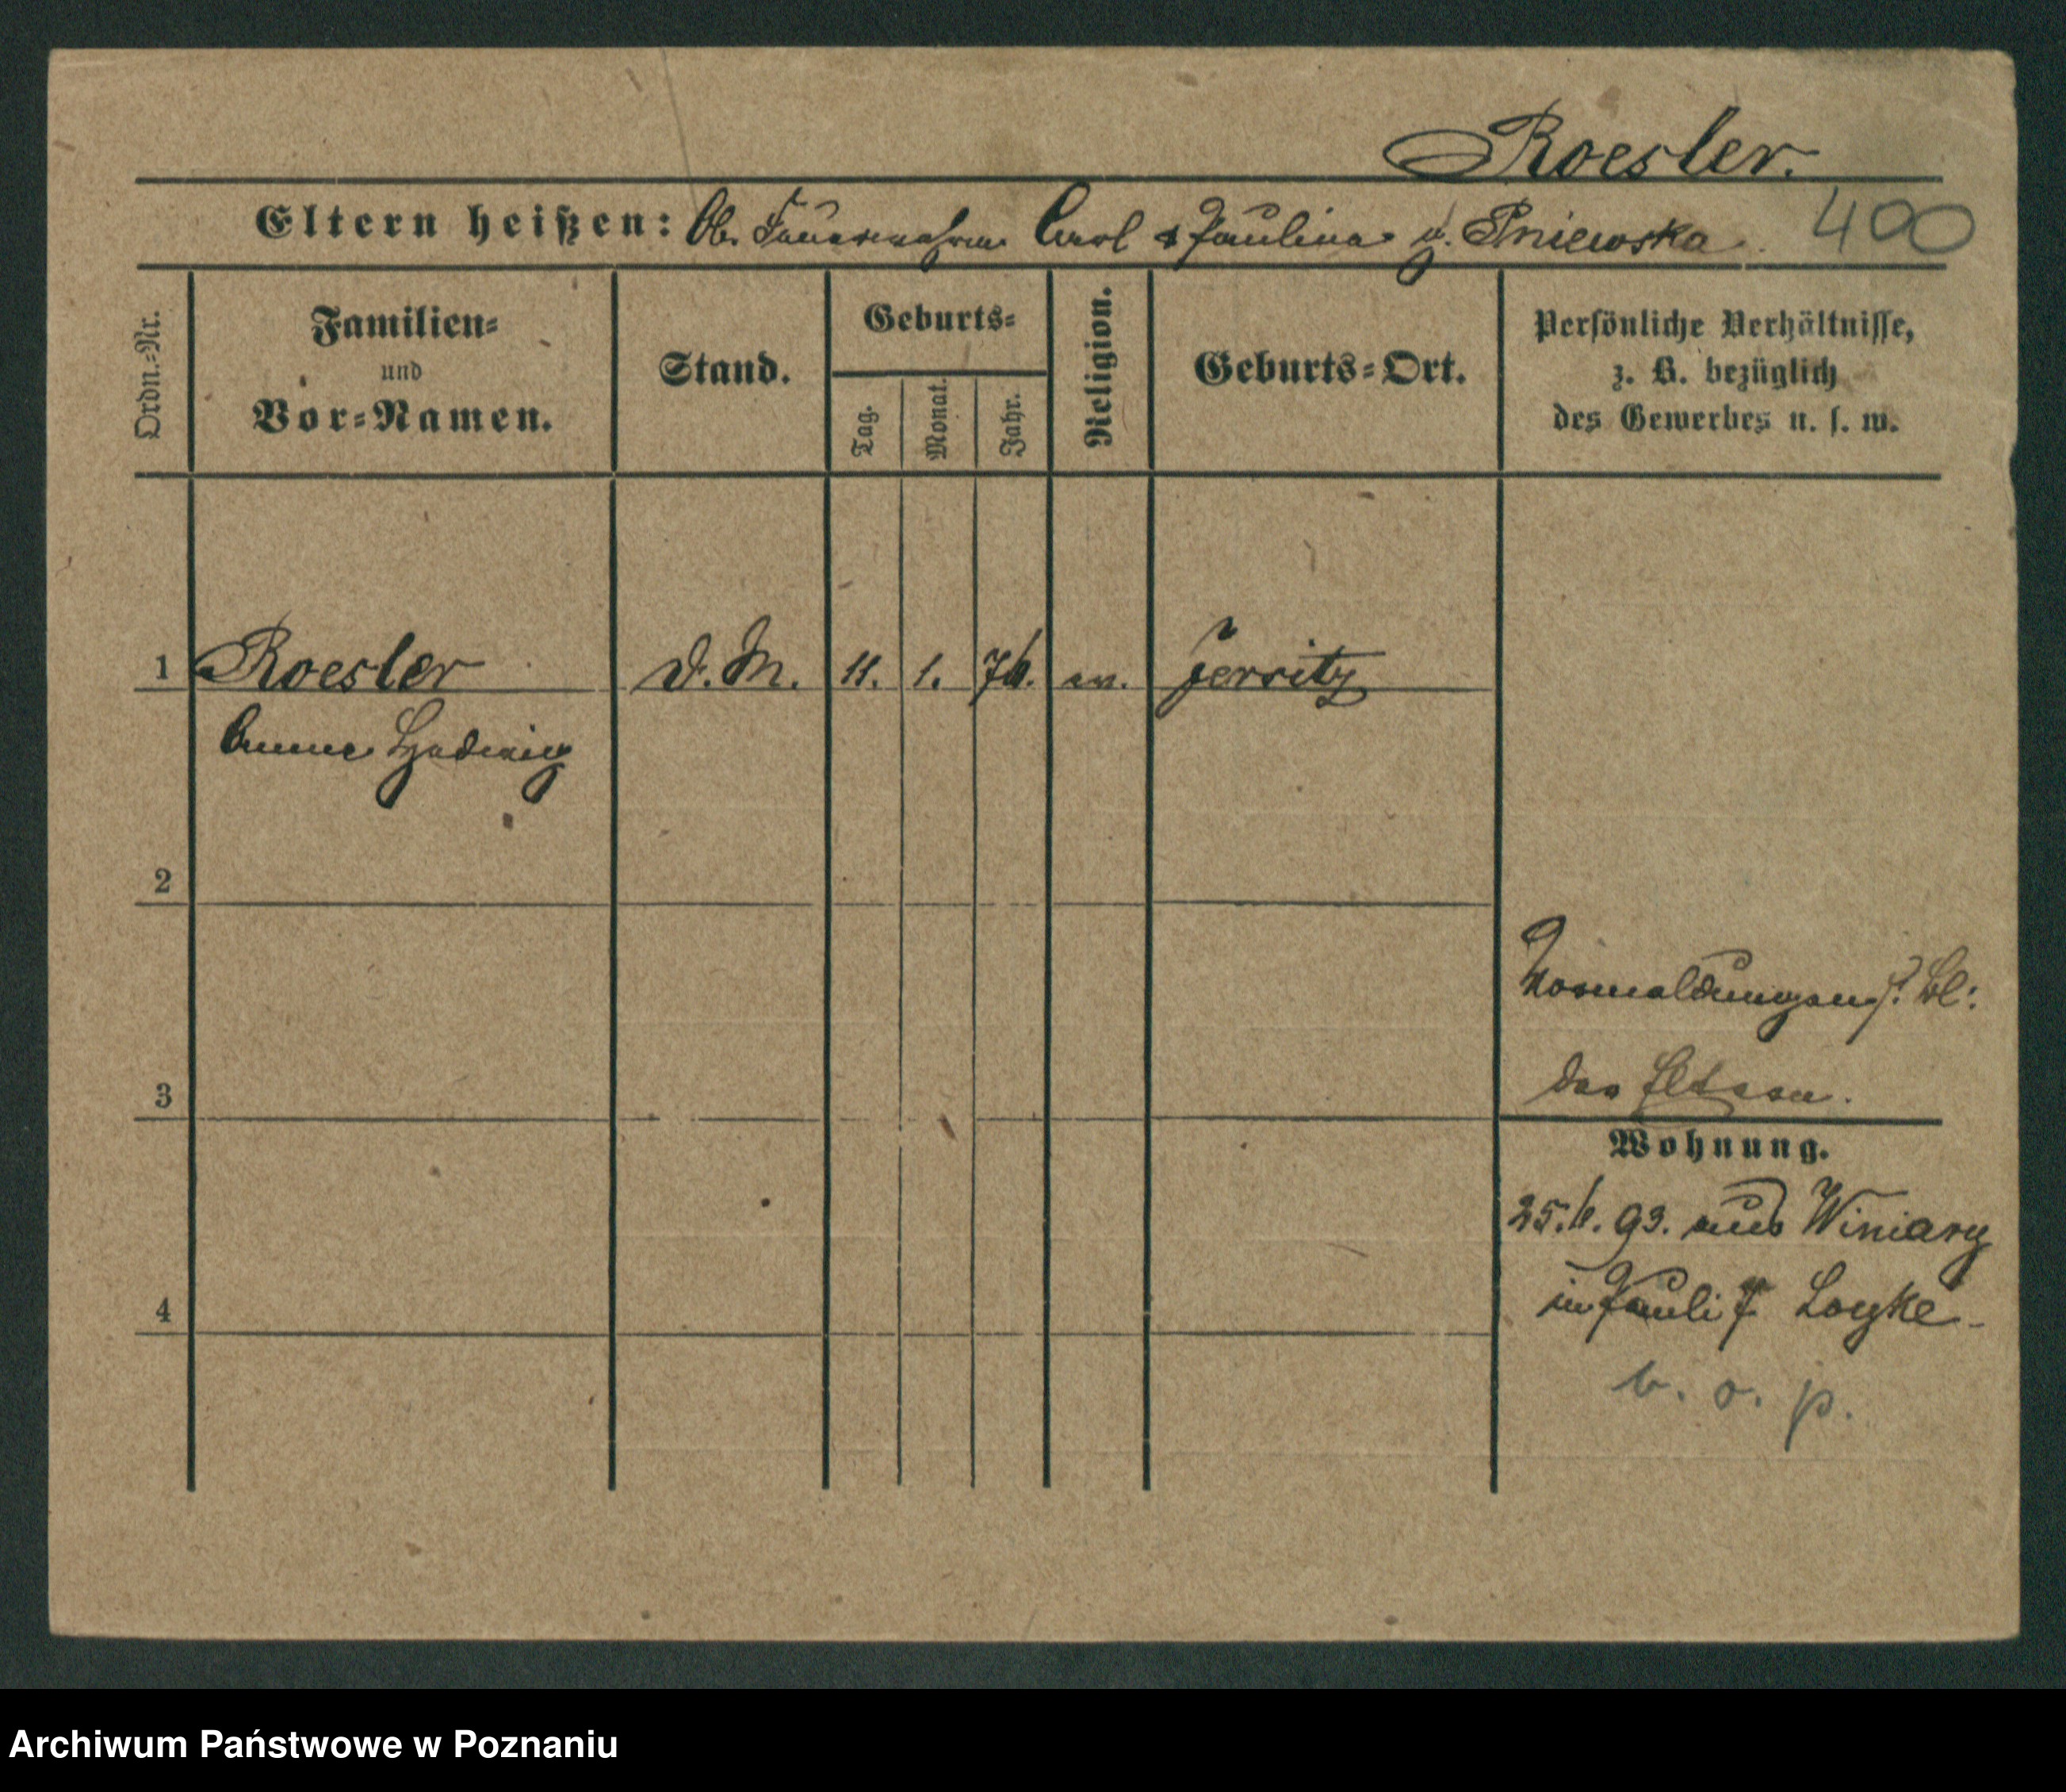 Roesler.
Eltern heißen: Ob. Feuerwehrm. Carl & Paulina g. Pniewska. 400
Ordn.-Nr.
Familien-
und
Vor-Namen.
Stand.
Geburts-
Tag.
Monat.
Jahr.
Religion.
Geburts-Ort.
Persönliche Verhältnisse,
z. B. bezüglich
des Gewerbes u. s. w.
1 Roesler D. M. 11. 1. 76. ev. Jersitz
Anna Hedwig
2
Vormeldungen s. Bl:
3 der Eltern.
Wohnung.
25.6.93. aus Winiary
4 in Pauli Loyke
v. o. p.
Archiwum Państwowe w Poznaniu